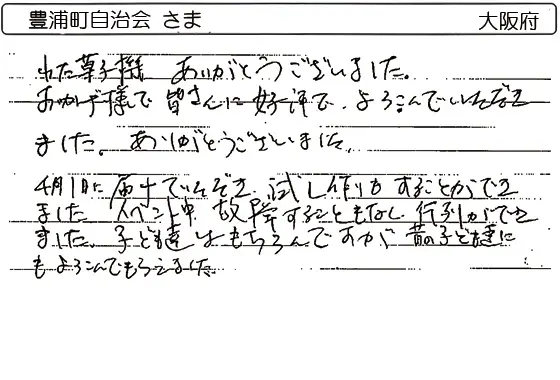 豊浦町自治会 さま 大阪府
わた菓子機 ありがとうございました。
おかげ様で 皆さんに好評で、よろこんでいただき
ました。ありがとうございました。
4月1日に届けていただき、試し作りもすることができ
ました イベント中 故障することもなし 行列ができ
ました。子ども達はもちろんですが 昔の子ども達に
もよろこんでもらえました。